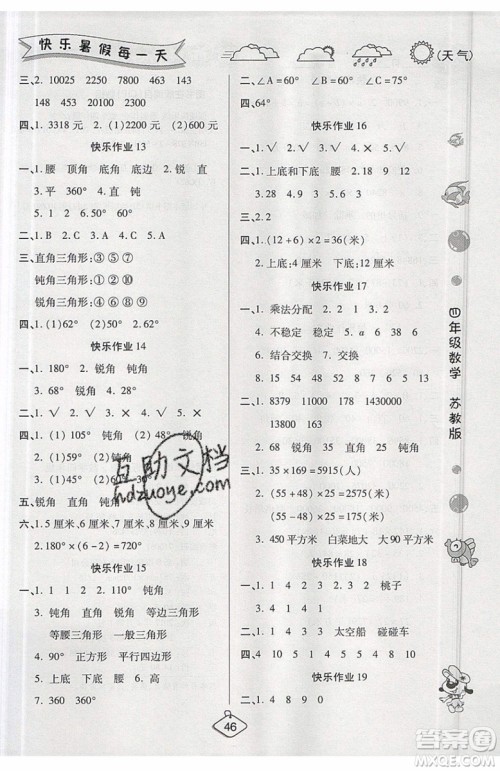 快乐暑假每一天
(天气)
三、2. 10025 2250 7800 463 243
148 453 20100 2300
四、1. 3318 元 2. (1)2200 元 (2)600 元
快乐作业 13
一、1. 腰 顶角 底角 底边 2. 锐 直
3. 平 360° 4. 直 钝
5. 1 2 0°
二、1. B 2. C 3. A 4. B
三、直角三角形:③ ⑤ ⑦
钝角三角形:① ② ⑥
锐角三角形:④ ⑧ ⑨
四、1. (1)62° (2)50° 2. 68°
快乐作业 14
一、1. 180° 锐角 2. 锐角
3. 68° 锐角 4. 28°
二、1. ✓ 2. ✓ 3. × 4. ✓
四、1. (1)105° 钝角 (2)48° 锐角
2. (1)59° (2)45°
3. (180°-60°)÷2=60°
五、锐角 直角 钝角 钝角
六、1. 5 厘米 5 厘米 5 厘米
2. 180°×(6-2)=720°
快乐作业 15
一、1. 2 2. 110° 钝角
3. 钝角 直角 锐角 等边三角形
等腰三角形 一般三角形
4. 90° 正方形 平行四边形
5. 上底 下底 高 6. 无数
7. 360 360°
二、∠A=60° ∠B=60° ∠C=60°
四、64°
快乐作业 16
一、1. ✓ 2. ✓ 3. × 4. ×
二、1. 上底和下底 腰 2. 3 1
3. 28 4. 9 5. 12 6. 3
三、2. 2
四、1. (12+6)×2=36(米)
2. 上底:4 厘米 下底:7 厘米
快乐作业 17
一、1. 乘法分配 2. 2 1 3. 1
4. 不稳定 稳定 5. a 6. 38
6. 结合交换 7. 交换
8. 15 9. 8 1378 1430000
13800 163
2. 68 锐角 3. 51 4. 35
三、1. 35×169=5915(元)
2. (55+48)×25=2575(米)
(55-48)×25=175(米)
3. 450 平方米 白菜地大 大 90 平方米
快乐作业 18
一、1. 4 1 2 4 2 桃子
二、1. 3 4 太空船 碰碰车
2. 4 1 3 2
快乐作业 19
一、1. 4 8 9 0
四年级数学 苏教版
46
互助文档
hdzuoye.com
答案圈
MXQE.COM